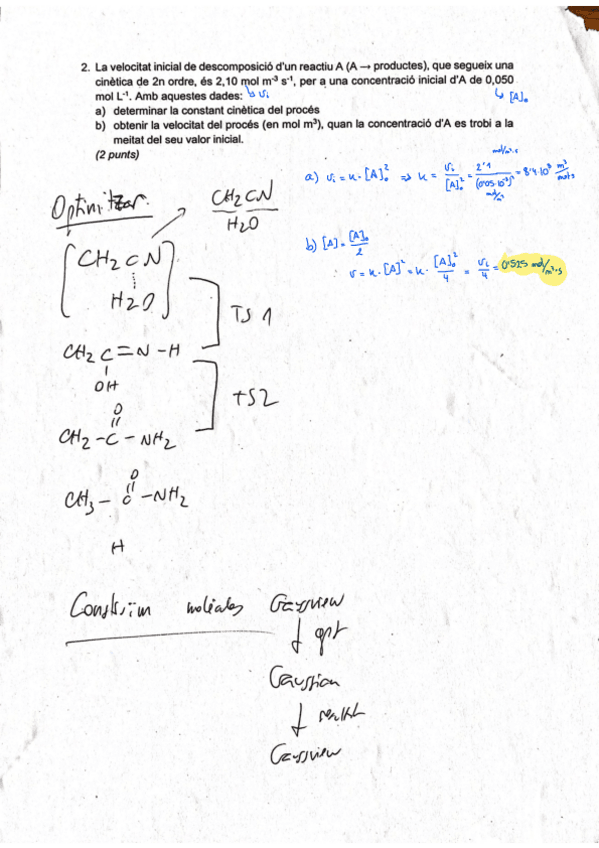 2. La velocitat inicial de descomposició d'un reactiu A (A → productes), que segueix una
cinètica de 2n ordre, és 2,10 mol m⁻³ s⁻¹, per a una concentració inicial d'A de 0,050
mol L⁻¹. Amb aquestes dades: ↳ vᵢ ↳ [A]₀
a) determinar la constant cinètica del procés
b) obtenir la velocitat del procés (en mol m³), quan la concentració d'A es trobi a la
meitat del seu valor inicial.
(2 punts)
a) vᵢ = k · [A]₀² ⇒ k = vᵢ/[A]₀² =
b) [A] = [A]₀/2
v = k · [A]² = k · [A]₀²/4 = vᵢ/4 = 0'525 mol/m³·s
Optimitzar.
CH2CN
H2O
[CH2CN
H2O]
TS 1
CH2 C = N - H
OH
TS2
O
CH2 - C - NH2
O
CH3 - C - NH2
H
Gaussview
↓ opt
Gaussian
↓
Gaussview